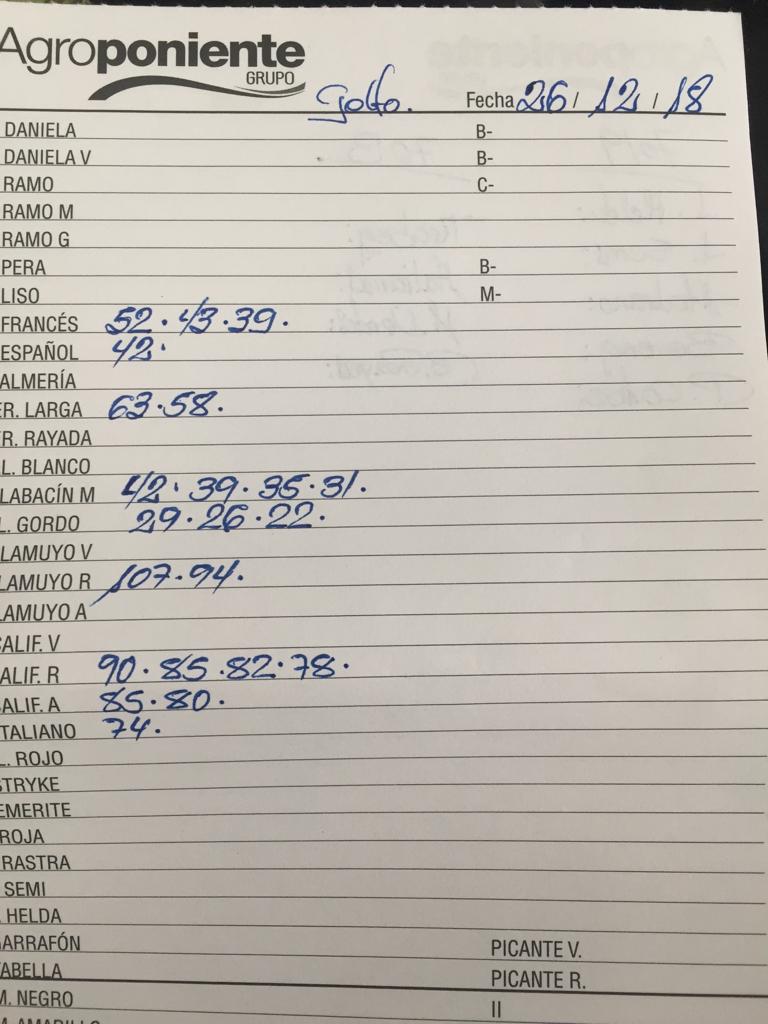 Agroponiente
GRUPO
Golfo. Fecha 26 / 12 / 18
DANIELA B-
DANIELA V B-
RAMO C-
RAMO M
RAMO G
PERA B-
LISO M-
FRANCÉS 52. 43. 39.
ESPAÑOL 42.
ALMERÍA
ER. LARGA 63. 58.
ER. RAYADA
L. BLANCO
LABACÍN M 42. 39. 35. 31.
L. GORDO 29. 26. 22.
LAMUYO V
LAMUYO R 107. 94.
LAMUYO A
CALIF. V
CALIF. R 90. 85. 82. 78.
CALIF. A 85. 80.
ITALIANO 74.
L. ROJO
STRYKE
EMERITE
ROJA
RASTRA
SEMI
HELDA
GARRAFÓN PICANTE V.
TABELLA PICANTE R.
M. NEGRO II
M. AMARILLO